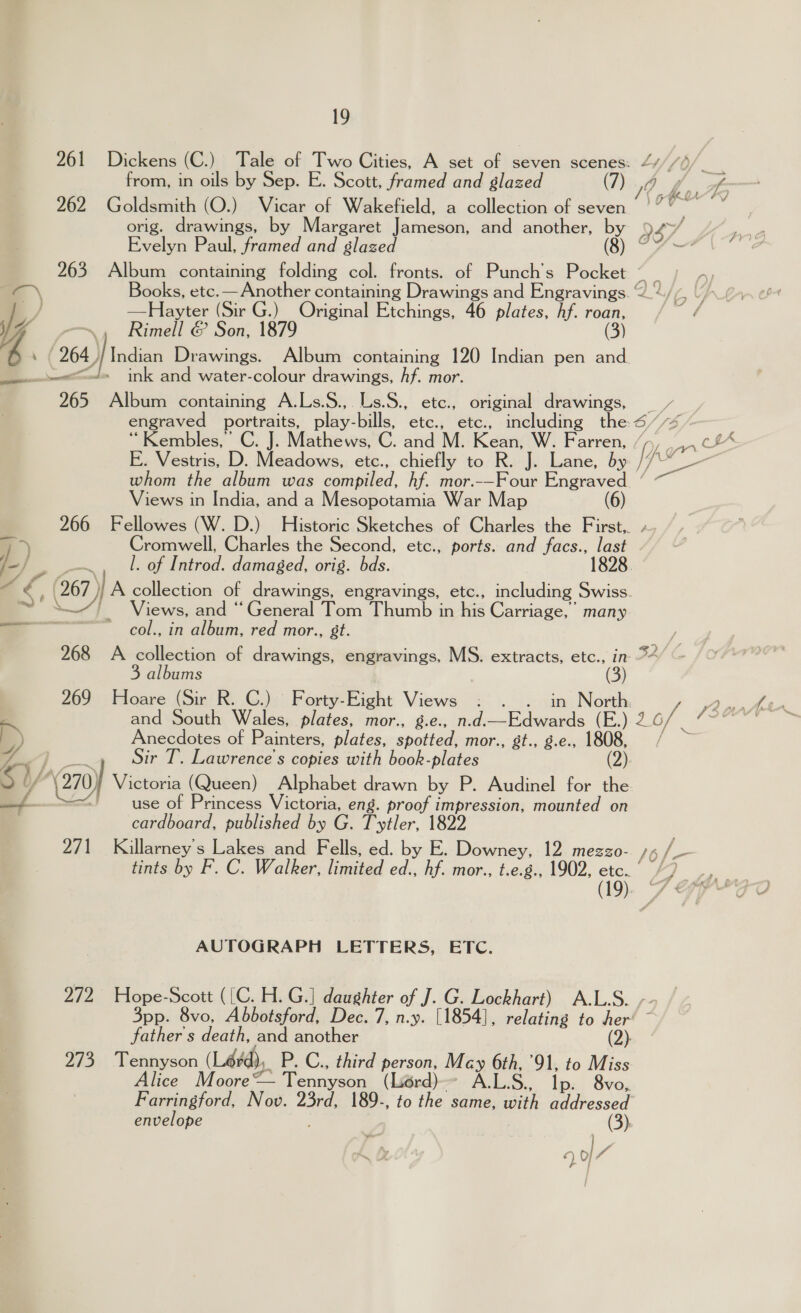 19
261 Dickens (C.) Tale of Two Cities, A set of seven scenes
from, in oils by Sep. E. Scott, framed and glazed (7)
262 Goldsmith (O.) Vicar of Wakefield, a collection of seven
orig. drawings, by Margaret Jameson, and another, by
Evelyn Paul, framed and glazed (8)
263 Album containing folding col. fronts. of Punch's Pocket
Books, etc.—Another containing Drawings and Engravings.
—Hayter (Sir G.) Original Etchings, 46 plates, hf. roan,
Rimell & Son, 1879 (3)
264 Indian Drawings. Album containing 120 Indian pen and
ink and water-colour drawings, hf. mor.
265 Album containing A.Ls.S., Ls.S., etc., original drawings,
engraved portraits, play-bills, etc., etc., including the
"Kembles," C. J. Mathews, C. and M. Kean, W. Farren,
E. Vestris, D. Meadows, etc., chiefly to R. J. Lane, by
whom the album was compiled, hf. mor.—Four Engraved
Views in India, and a Mesopotamia War Map (6)
266 Fellowes (W. D.) Historic Sketches of Charles the First,
Cromwell, Charles the Second, etc., ports. and facs., last
l. of Introd. damaged, orig. bds. 1828
267 A collection of drawings, engravings, etc., including Swiss
Views, and "General Tom Thumb in his Carriage," many
col., in album, red mor., gt.
268 A collection of drawings, engravings, MS. extracts, etc., in
3 albums (3)
269 Hoare (Sir R. C.) Forty-Eight Views . . . in North
and South Wales, plates, mor., g.e., n.d.—Edwards (E.)
Anecdotes of Painters, plates, spotted, mor., gt., g.e., 1808,
Sir T. Lawrence's copies with book-plates (2)
270 Victoria (Queen) Alphabet drawn by P. Audinel for the
use of Princess Victoria, eng. proof impression, mounted on
cardboard, published by G. Tytler, 1822
271 Killarney's Lakes and Fells, ed. by E. Downey, 12 mezzo-
tints by F. C. Walker, limited ed., hf. mor., t.e.g., 1902, etc.
(19)
AUTOGRAPH LETTERS, ETC.
272 Hope-Scott ([C. H. G.] daughter of J. G. Lockhart) A.L.S.
3pp. 8vo, Abbotsford, Dec. 7, n.y. [1854], relating to her
father's death, and another (2)
273 Tennyson (Lord), P. C., third person, May 6th, '91, to Miss
Alice Moore—Tennyson (Lord) A.L.S., 1p. 8vo,
Farringford, Nov. 23rd, 189-, to the same, with addressed
envelope (3)